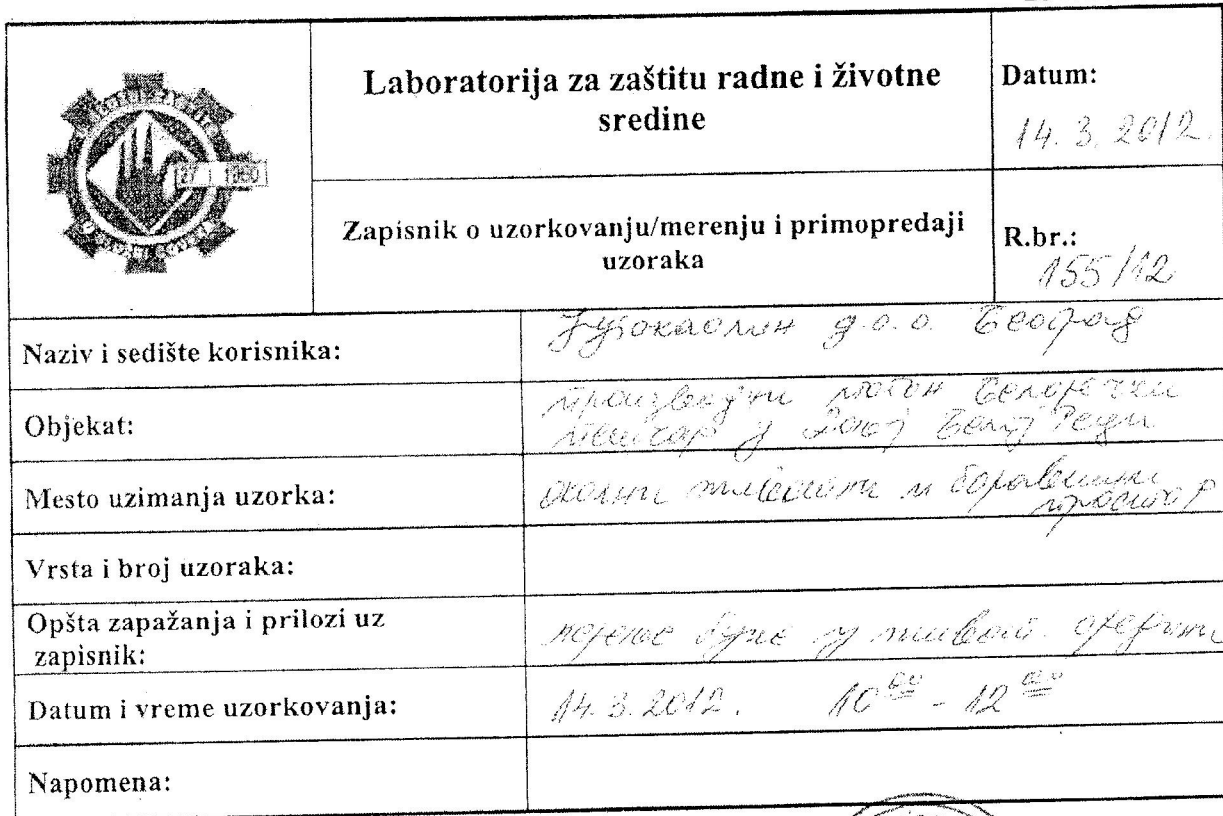 Laboratorija za zaštitu radne i životne
sredine
Datum:
14. 3. 2012.
Zapisnik o uzorkovanju/merenju i primopredaji
uzoraka
R.br.:
155/12
Naziv i sedište korisnika:
Југокаолин д.о.о. Београд
Objekat:
производни погон Белоречки
пешчар у Белој Реци
Mesto uzimanja uzorka:
и боравишни
простор
Vrsta i broj uzoraka:
Opšta zapažanja i prilozi uz
zapisnik:
мерење буке у животн. средини
Datum i vreme uzorkovanja:
14. 3. 2012. 10 00 - 12 00
Napomena: